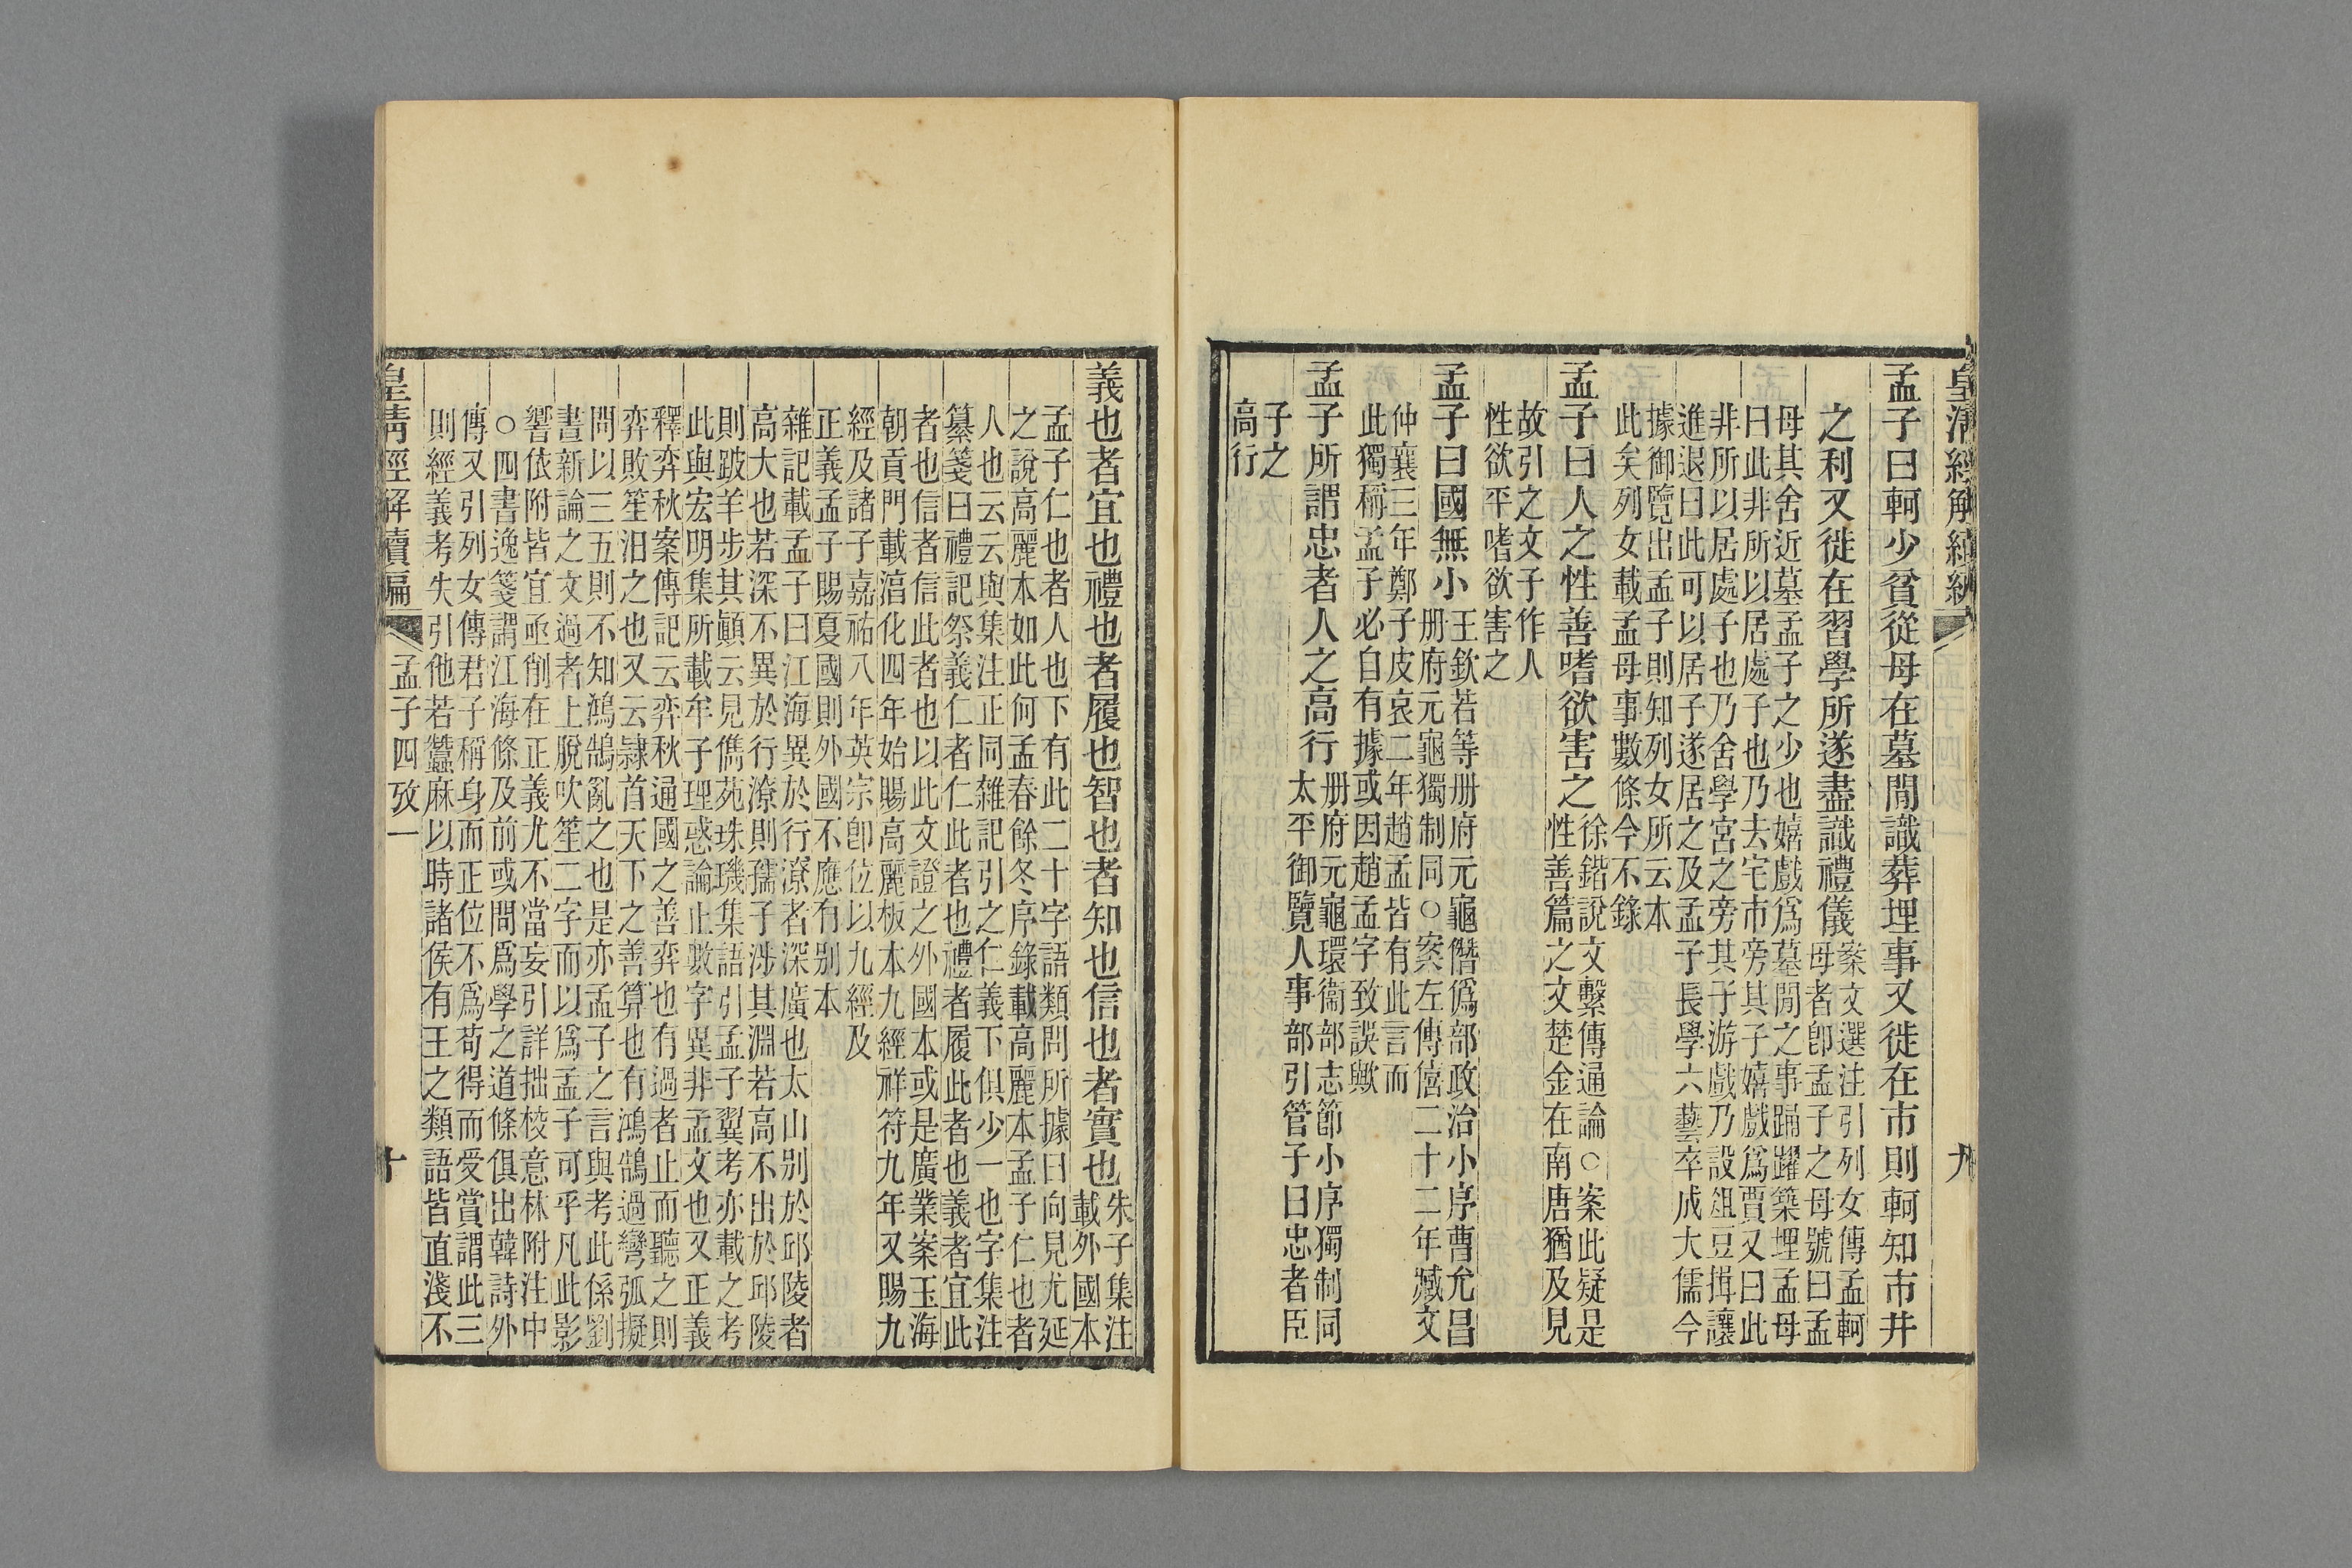 皇清經解續編
九
孟子曰軻少貧從母在墓閒識葬埋事又徙在市則軻知市井
之利又徙在習學所遂盡識禮儀
案文選注引列女傳孟軻
母者卽孟子之母號曰孟
母其舍近墓孟子之少也嬉戲爲墓閒之事踊躍築埋孟母
曰此非所以居處子也乃去宅市旁其子嬉戲爲賈又曰此
非所以居處子也乃舍學宮之旁其子游戲乃設俎豆揖讓
進退曰此可以居子遂居之及孟子長學六藝卒成大儒今
據御覽出孟子則知列女所云本
此矣列女載孟母事數條今不錄
孟子曰人之性善嗜欲害之
徐鍇說文繫傳通論○案此疑是
性善篇之文楚金在南唐猶及見
故引之文子作人
性欲平嗜欲害之
孟子曰國無小
王欽若等册府元龜僭僞部政治小序曹允昌
册府元龜獨制同○案左傳僖二十二年臧文
仲襄三年鄭子皮哀二年趙孟皆有此言而
此獨稱孟子必自有據或因趙孟字致誤歟
孟子所謂忠者人之高行
册府元龜環衞部志節小序獨制同
太平御覽人事部引管子曰忠者臣
子之
高行
義也者宜也禮也者履也智也者知也信也者實也
朱子集注
載外國本
孟子仁也者人也下有此二十字語類問所據曰向見尤延
之說高麗本如此何孟春餘冬序錄載高麗本孟子仁也者
人也云云與集注正同雜記引之仁義下俱少一也字集注
纂箋曰禮記祭義仁者仁此者也禮者履此者也義者宜此
者也信者信此者也以此文證之外國本或是廣業案玉海
朝貢門載滈化四年始賜高麗板本九經祥符九年又賜九
經及諸子嘉祐八年英宗卽位以九經及
正義孟子賜夏國則外國不應有別本
雜記載孟子曰江海異於行潦者深廣也太山別於邱陵者
高大也若深不異於行潦則孺子涉其淵若高不出於邱陵
則跛羊步其顚云見儁苑珠璣集語引孟子翼考亦載之考
此與宏明集所載牟子理惑論止數字異非孟文也又正義
釋弈秋案傳記云弈秋通國之善弈也有過者止而聽之則
弈敗笙汨之也又云隸首天下之善算也有鴻鵠過彎弧擬
問以三五則不知鴻鵠亂之也是亦孟子之言與考此係劉
晝新論之文過者上脫吹笙二字而以爲孟子可乎凡此影
響依附皆宜亟削在正義尤不當妄引詳拙校意林附注中
○四書逸箋謂江海條及前或問爲學之道條俱出韓詩外
傳又引列女傳君子稱身而正位不爲苟得而受賞謂此三
則經義考失引他若蠶麻以時諸侯有王之類語皆直淺不
皇清經解續編
孟子四攷一
十